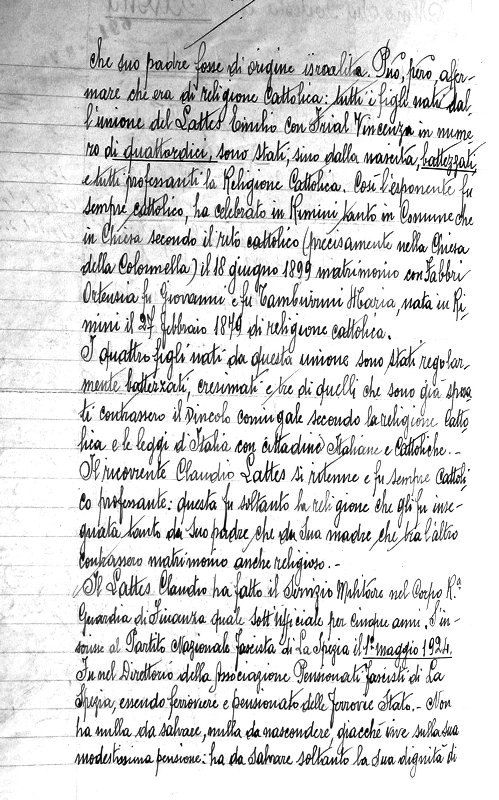 che suo padre fosse di origine israelita. Può, però, affer-
mare che era di religione Cattolica: tutti i figli nati dal-
l'unione del Lattes Emilio con Trial Vincenza in nume
ro di quattordici, sono stati, sino dalla nascita, battezzati,
e tutti professanti la Religione Cattolica. Così l'esponente fu
sempre cattolico, ha celebrato in Rimini tanto in Comune che
in Chiesa secondo il rito cattolico (precisamente nella Chiesa
della Colonnella) il 18 giugno 1899 matrimonio con Fabbri
Ortensia fu Giovanni e fu Tamburini Maria, nata in Ri-
mini il 27 febbraio 1879 di religione cattolica.
I quattro figli nati da questa unione sono stati regolar-
mente battezzati, cresimati e tre di quelli che sono già sposa
ti contrassero il vincolo coniugale secondo la religione Catto
lica e le leggi d'Italia con cittadine Italiane e Cattoliche. -
Il ricorrente Claudio Lattes si ritenne e fu sempre Cattoli-
co professante: questa fu soltanto la religione che gli fu inse-
gnata tanto da suo padre che da sua madre che tra l'altro
contrassero matrimonio anche religioso. -
Il Lattes Claudio ha fatto il Servizio Militare nel Corpo R.a
Guardia di Finanza quale Sott'Ufficiale per cinque anni. S'in-
scrisse al Partito Nazionale Fascista di La Spezia il 1° maggio 1924.
Fu nel Direttorio della Associazione Pensionati Fascisti di La
Spezia, essendo ferroviere e pensionato delle Ferrovie Stato. - Non
ha nulla da salvare, nulla da nascondere, giacché vive sulla sua
modestissima pensione: ha da salvare soltanto la sua dignità di